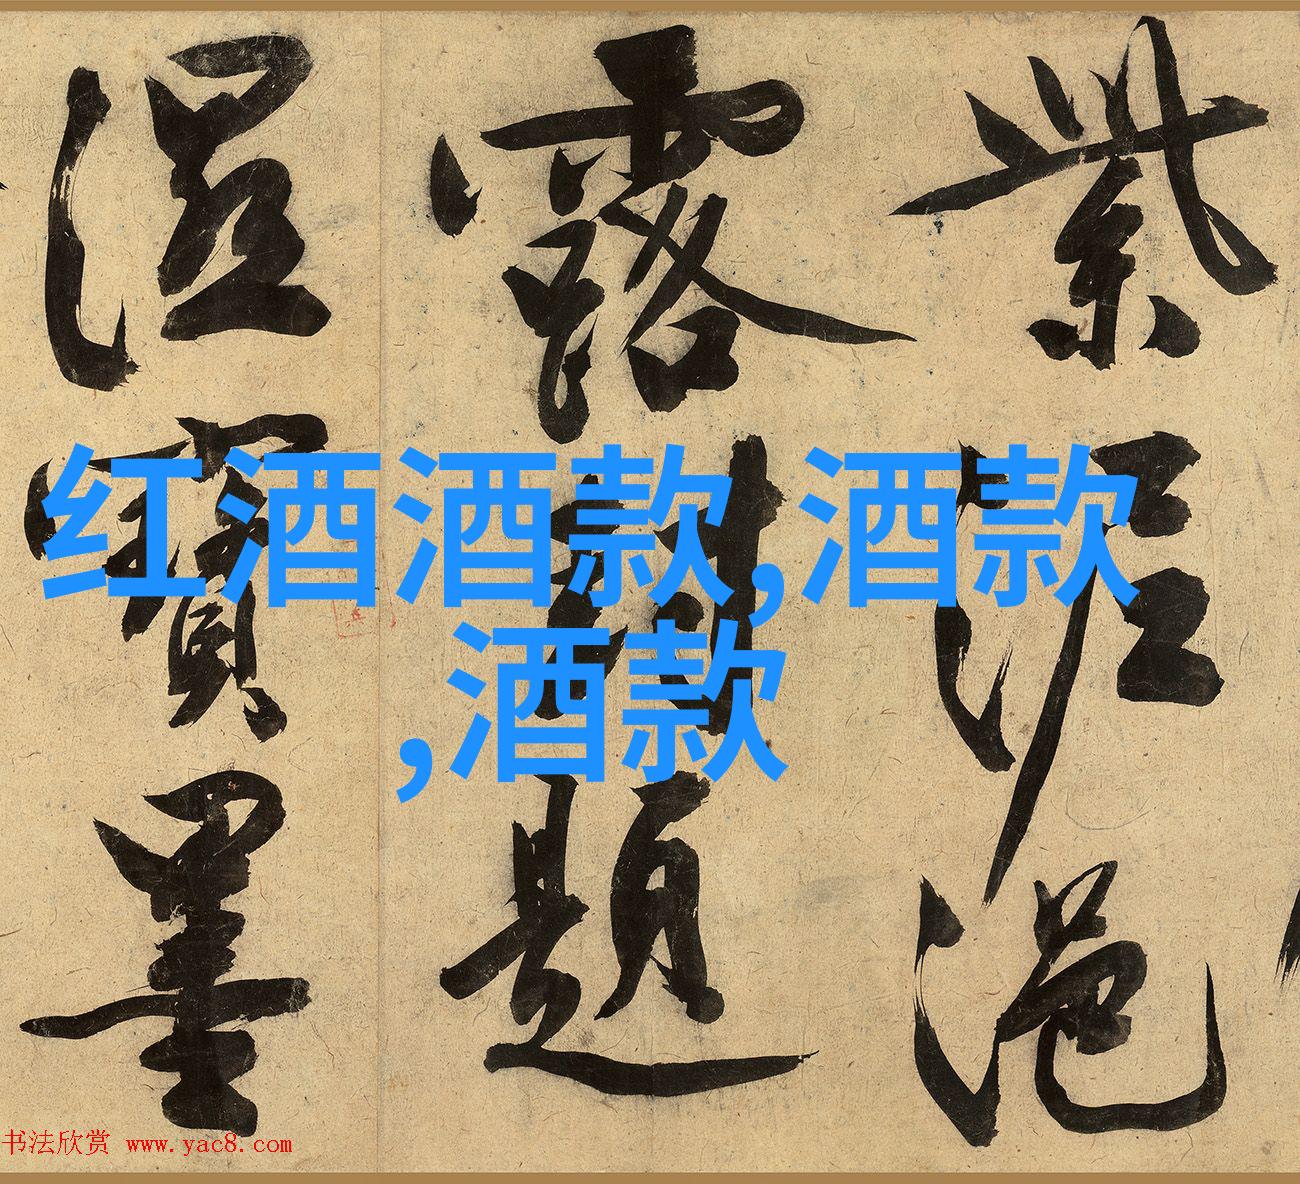 紫泥浥
露封題
溼寶墨
红酒酒款,酒款
,酒款
书法欣赏 www.yac8.com